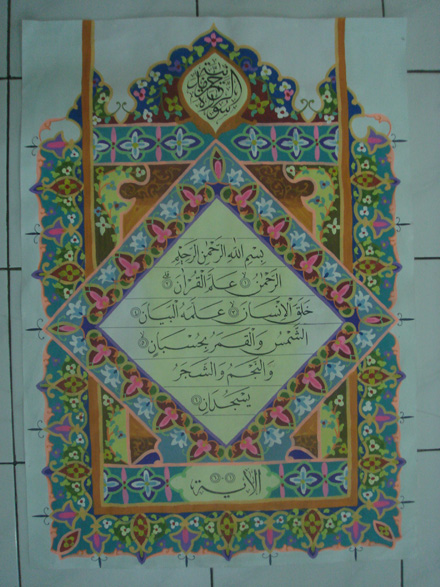 سورة الرحمن مدنية
بِسْمِ اللهِ الرَّحْمٰنِ الرَّحِيْمِ
اَلرَّحْمٰنُ ١ عَلَّمَ الْقُرْاٰنَ ٢
خَلَقَ الْاِنْسَانَ ٣ عَلَّمَهُ الْبَيَانَ ٤
الشَّمْسُ وَالْقَمَرُ بِحُسْبَانٍ ٥
وَالنَّجْمُ وَالشَّجَرُ
يَسْجُدَانِ ٦
الآية ١-٦